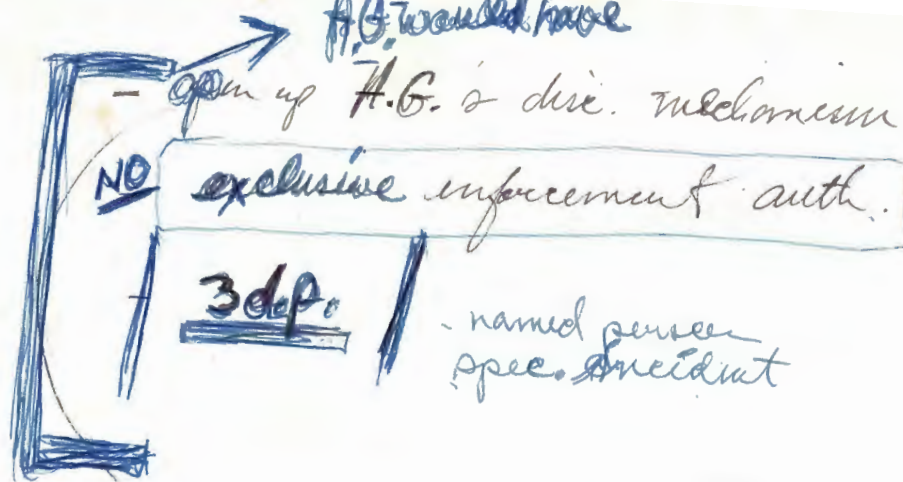 A.G. would have
- open up A.G.'s disc. mechanism
NO exclusive enforcement auth.
- 3 dep.
- named person
spec. incident